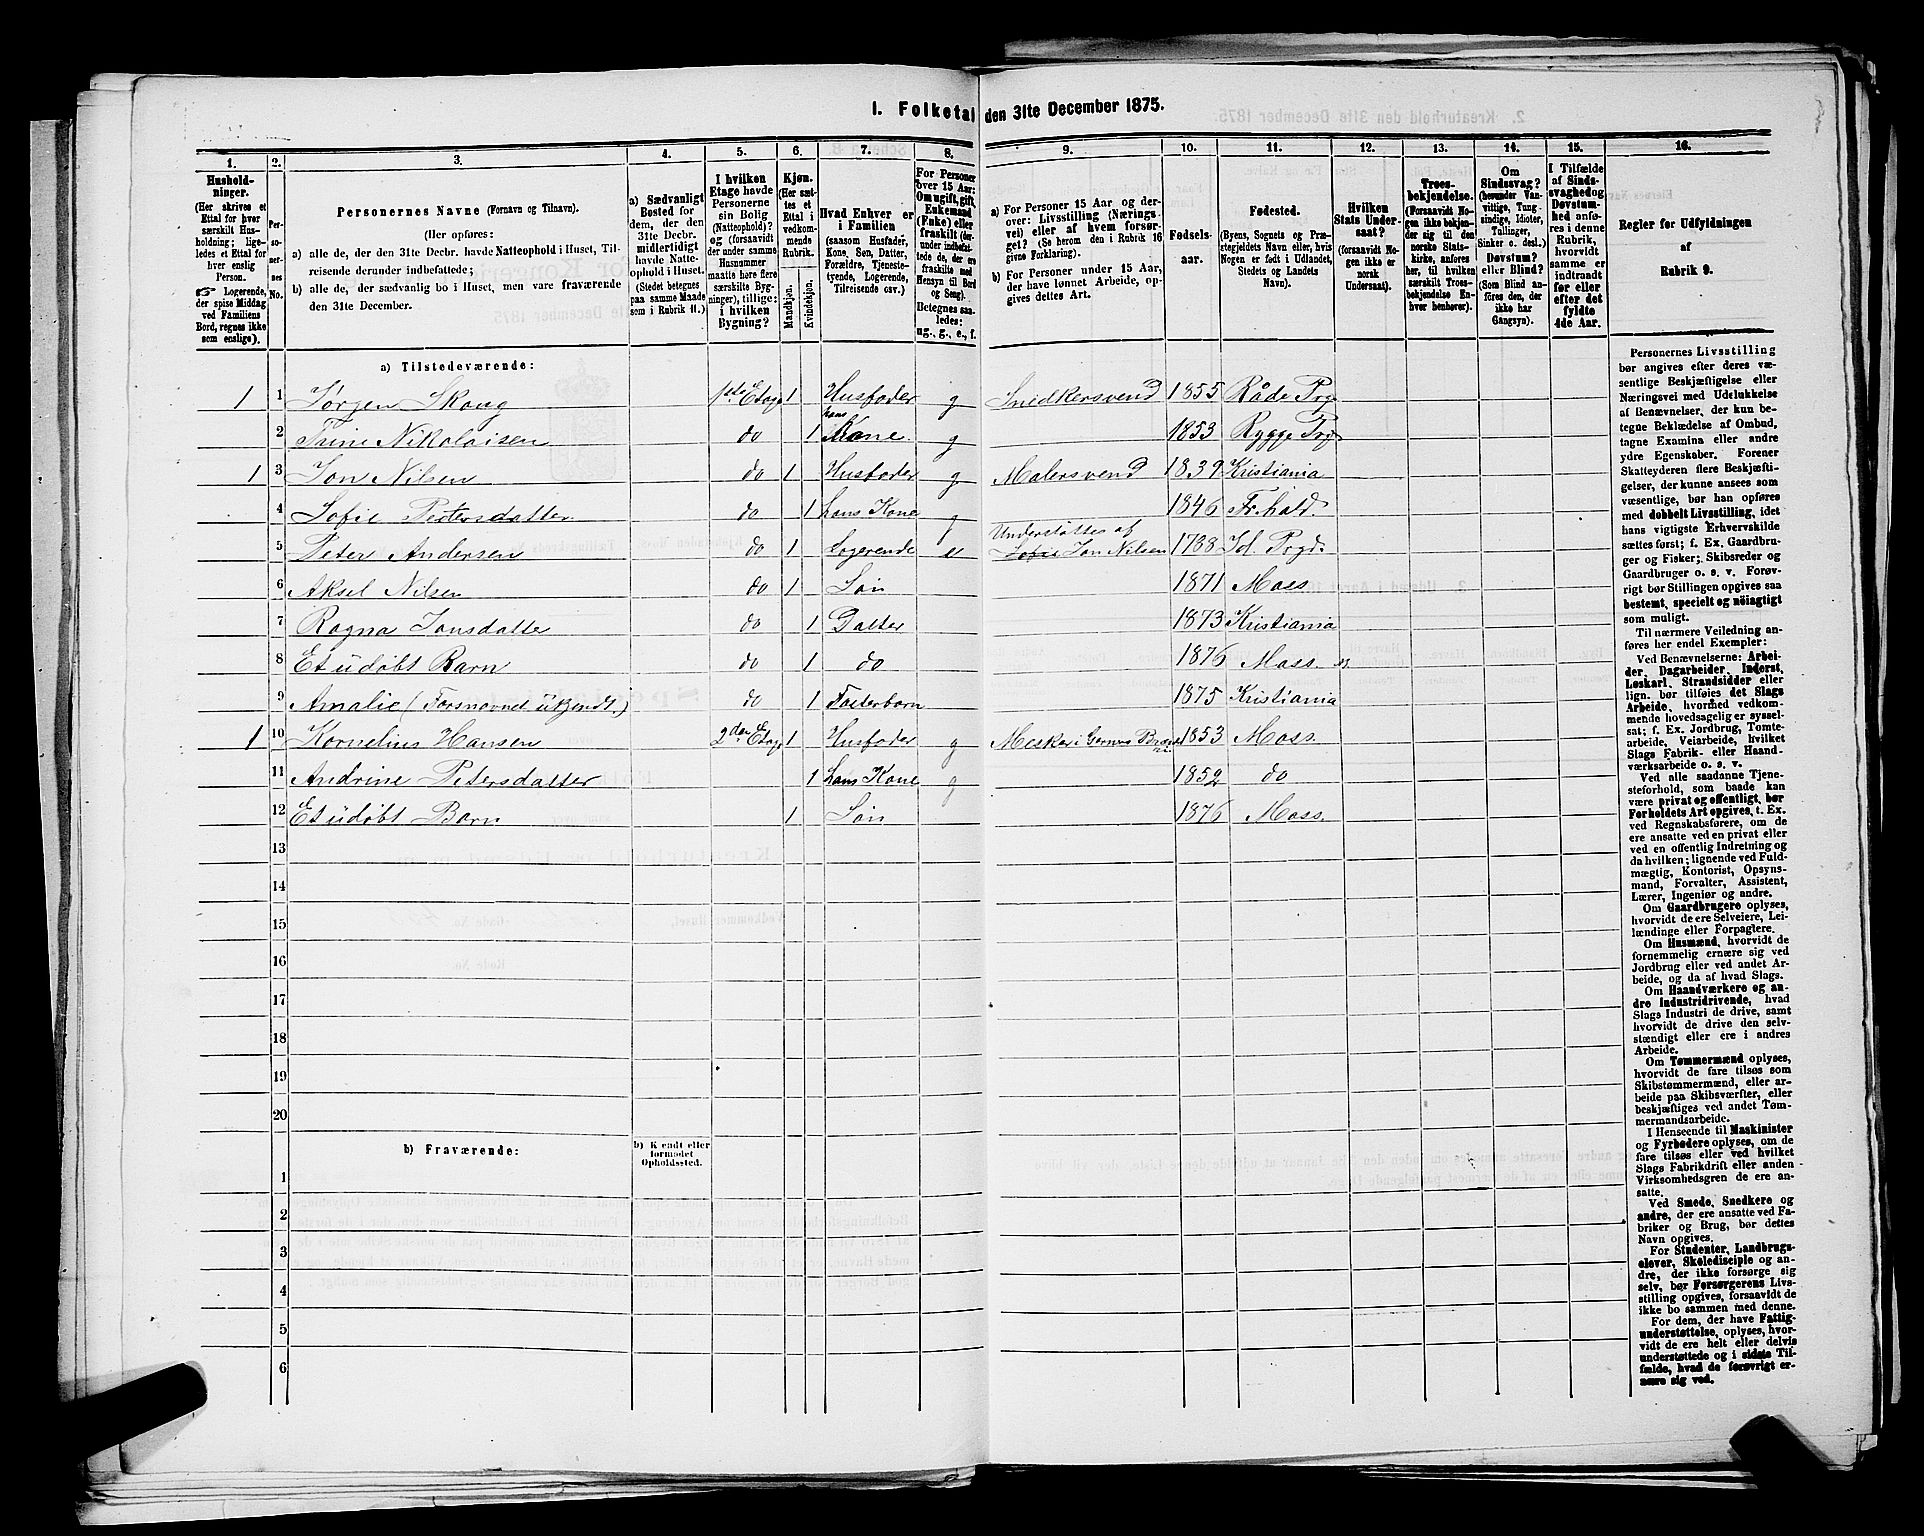 1. Folketal den 31te December 1875.
1. 2. 3. 4. 5. 6. 7. 8. 9. 10. 11. 12. 13. 14. 15. 16.
Husholdninger.
(Her skrives et
Ettal for hver
særskilt Husholdning;
ligeledes
et Ettal for
hver enslig
Person.
☞ Logerende,
der spise Middag
ved Familiens
Bord, regnes ikke
som enslige).
Personernes No.
Personernes Navne (Fornavn og Tilnavn).
(Her opføres:
a) alle de, der den 31te Decbr. havde Natteophold i Huset, Tilreisende
derunder indbefattede;
b) alle de, der sædvanlig bo i Huset, men vare fraværende
den 31te December.
a) Sædvanligt
Bosted for
dem, der den
31te Decbr.
midlertidigt
havde Natteophold
i Huset.
(Stedet betegnes
paa samme Maade
som i Rubrik 11.)
I hvilken
Etage havde
Personerne
sin Bolig
(Natteophold)?
og (forsaavidt
der under samme
Husnummer
maatte høre flere
særskilte Bygninger),
tillige:
i hvilken
Bygning?
Kjøn.
(Her sættes
et
Ettal i
vedkommende
Rubrik.
Mandkjøn.
Kvindekjøn.
Hvad Enhver er
i Familien
(saasom Husfader,
Kone, Søn, Datter,
Forældre, Tjenestetyende,
Logerende,
Tilreisende osv.)
For Personer
over 15 Aar:
Om ugift, gift,
Enkemand
(Enke) eller
fraskilt (derunder
indbefattede
de, der ere
fraskilte med
Hensyn til Bord
og Seng).
Betegnes saaledes:
ug., g., e., f.
a) For Personer 15 Aar og derover:
Livsstilling (Næringsvei)
eller af hvem forsørget?
(Se herom den i Rubrik 16
givne Forklaring).
b) For Personer under 15 Aar,
der have lønnet Arbeide, opgives
dettes Art.
Fødselsaar.
Fødested.
(Byens, Sognets og Præstegjeldets
Navn eller, hvis
Nogen er født i Udlandet,
Stedets og Landets
Navn).
Hvilken
Stats Undersaat?
(forsaavidt Nogen
ikke er
norsk
Undersaat).
Troesbekjendelse.
(Forsaavidt Nogen
ikke bekjender
sig til den
norske Statskirke,
anføres
her, til hvilken
særskilt Troesbekjendelse
Enhver
henhører).
Om
Sindssvag?
(herunder Vanvittige,
Tungsindige,
Idioter,
Tullinger,
Sinker o. desl.)
Døvstum?
eller Blind?
(Som Blind anføres
den, der
ikke har
Gangsyn).
I Tilfælde
af Sindssvaghed
og
Døvstumhed
anføres
i denne
Rubrik,
hvorvidt
samme er
indtraadt
før eller
efter det
fyldte
4de Aar.
Regler for Udfyldningen
af
Rubrik 9.
a) Tilstedeværende:
1 1 Jørgen Skoug 1ste Etage 1 Husfader g Snedkersvend 1855 Råde Prg
2 Trine Nikolaisen do 1 hans Kone g 1853 Rygge Prg
1 3 Jon Nilsen do 1 Husfader g Malersvend 1839 Kristiania
4 Sofie Petersdatter do 1 hans Kone g 1846 Fr.hald.
5 Peter Andersen do 1 Logerende Understøttes af Jon Nilsen 1788 Prgd.
6 Aksel Nilsen do 1 Søn 1871 Moss
7 Ragna Jonsdatter do 1 Datter 1873 Kristiania
8 Et udøbt Barn do 1 do 1876 Moss
9 Amalie (Farsnavnet ukjendt.) do 1 Fosterbarn 1875 Kristiania
1 10 Kornelius Hansen 2den Etage 1 Husfader g 1853 Moss
11 Andrine Petersdatter 1 hans Kone g 1852 do
12 Et udøbt Barn 1 Søn 1876 Moss.
13
14
15
16
17
18
19
20
b) Fraværende:
b) Kjendt eller
formodet
Opholdssted.
1
2
3
4
5
6
Personernes Livsstilling
bør angives efter deres væsentlige
Beskjæftigelse eller
Næringsvei med Udelukkelse
af Benævnelser, der kun betegne
Beklædelse af Ombud,
tagne Examina eller andre
ydre Egenskaber. Forener
Skatteyderen flere Beskjæftigelser,
der kunne ansees som
væsentlige, bør han opføres
med dobbelt Livsstilling, idet
hans vigtigste Erhvervskilde
sættes først; f. Ex. Gaardbruger
og Fisker; Skibsreder og
Gaardbruger o. s. v. Forøvrigt
bør Stillingen opgives saa
bestemt, specielt og nøiagtigt
som muligt.
Til nærmere Veiledning anføres
her endel Exempler:
Ved Benævnelserne: Arbeider,
Dagarbeider, Inderst,
Løskarl, Strandsidder eller
lign. bør tilføies det Slags
Arbeide, hvormed vedkommende
hovedsagelig er sysselsat;
f. Ex. Jordbrug, Tomtearbeide,
Veiarbeide, hvilket
Slags Fabrik- eller Haandværksarbeide
o. s. v.
Ved alle saadanne Tjenesteforhold,
som baade kan
være privat og offentligt, bør
Forholdets Art opgives, t. Ex.
ved Regnskabsførere, om de
ere ansatte ved en privat eller
ved en offentlig Indretning og
da hvilken; lignende ved Fuldmægtig,
Kontorist, Opsynsmand,
Forvalter, Assistent,
Lærer, Ingeniør og andre.
Om Gaardbrugere oplyses,
hvorvidt de ere Selveiere, Leilændinge
eller Forpagtere.
Om Husmænd, hvorvidt de
fornemmelig ernære sig ved
Jordbrug eller ved andet Arbeide,
og da af hvad Slags.
Om Haandværkere og andre
Industridrivende, hvad
Slags Industri de drive, samt
hvorvidt de drive den selvstændigt
eller ere i andres
Arbeide.
Om Tømmermænd oplyses,
hvorvidt de fare tilsøs som
Skibstømmermænd, eller arbeide
paa Skibsværfter, eller
beskjæftiges ved andet Tømmermandsarbeide.
I Henseende til Maskinister
og Fyrbødere oplyses, om de
fare tilsøs eller ved hvilket
Slags Fabrikdrift eller anden
Virksomhedsgren de ere ansatte.
Ved Smede, Snedkere og
andre, der ere ansatte ved Fabriker
og Brug, bør dettes
Navn opgives.
For Studenter, Landbrugselever,
Skoledisciple og andre,
der ikke forsørge sig
selv, bør Forsørgerens Livsstilling
opgives, forsaavidt de
ikke bo sammen med denne.
For dem, der have Fattigunderstøttelse,
oplyses, hvorvidt
de ere helt eller delvis
understøttede og i sidste Tilfælde,
hvad de forøvrigt ernære
sig ved.